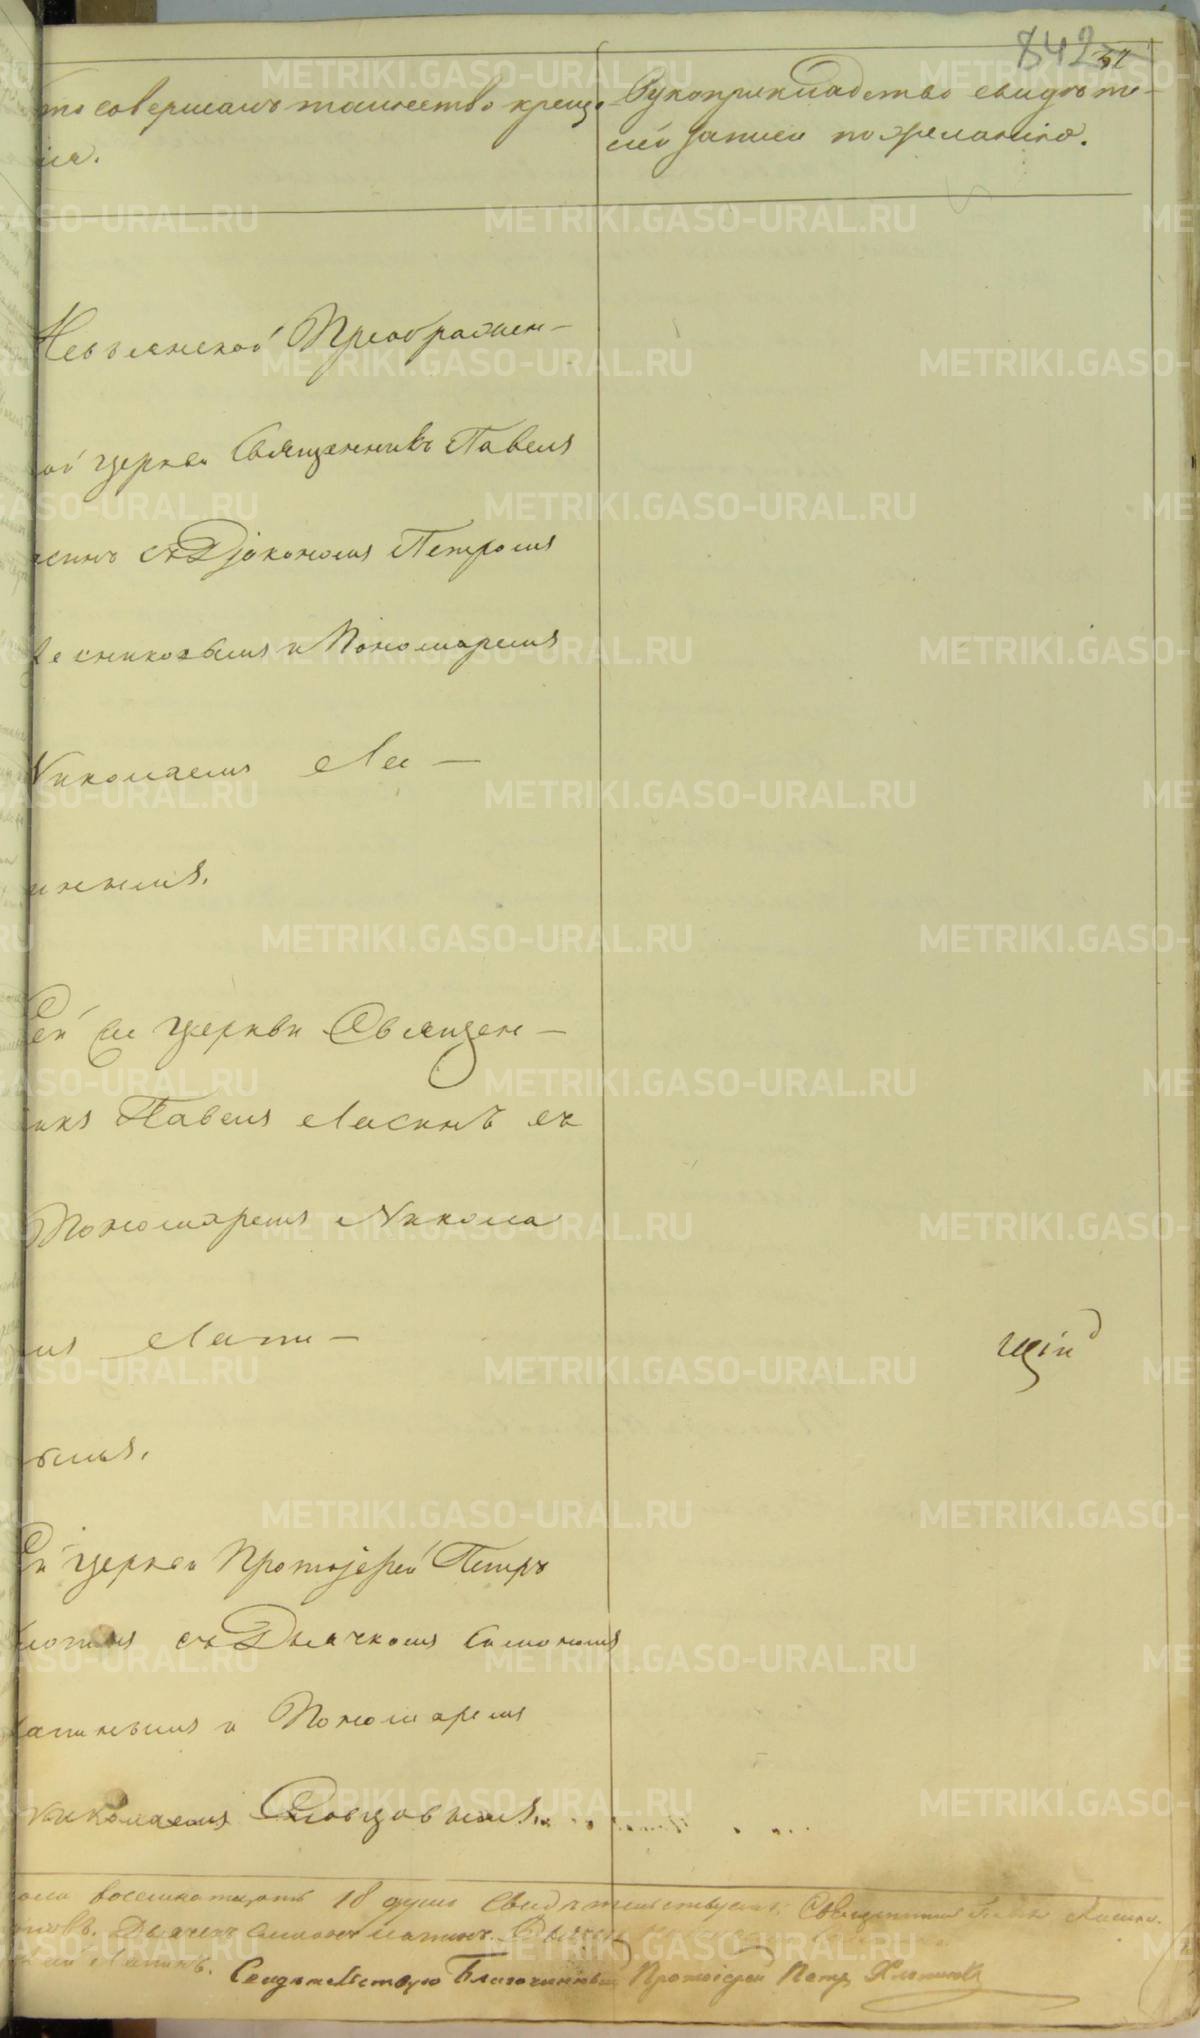 842
то совершалъ таинство креще
ія.
Рукоприкладство свидѣте-
лей записи по желанію.
Невьянской Преображен-
ой церкви Священникъ Павелъ
синъ съ Діакономъ Петромъ
и Пономаремъ
Николаемъ Ла-
инымъ.
ей же церкви Священ-
икъ Павелъ Ласинъ съ
Пономаремъ Никола
мъ Лапи-
щій
ымъ.
ей церкви Протоіерей Петръ
съ Дьячкомъ Симономъ
апинымъ и Пономаремъ
Николаемъ Словцовымъ.
восемнатцать 18 душъ Свидѣтельствуемъ: Священникъ Павелъ Ласинъ.
Дьячекъ Симонъ Лапинъ.
ай Лапинъ. Свидѣтельствую Благочинный Протоіерей Петръ Хлопиновъ
METRIKI.GASO-URAL.RU